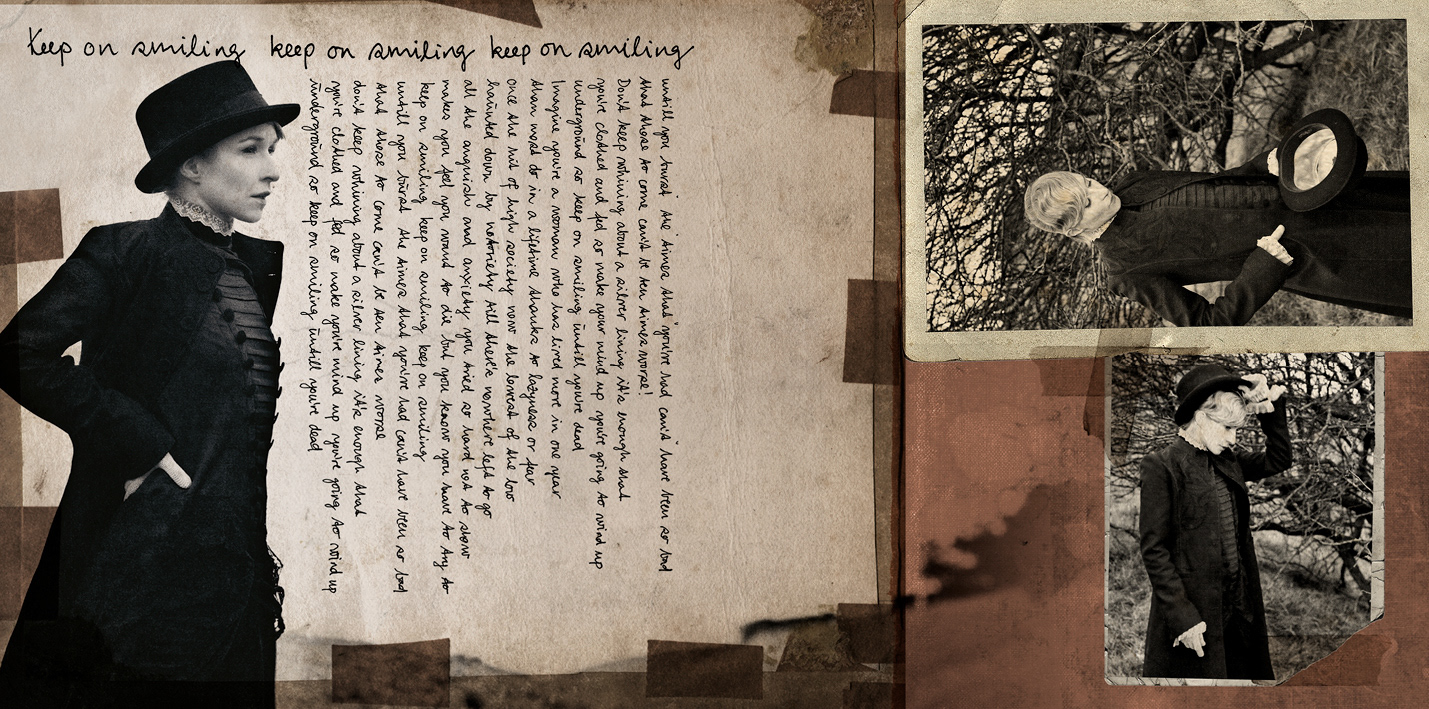 Keep on smiling keep on smiling keep on smiling
untill you burst the times that you've had can't have been so bad
that those to come can't be ten times worse!
Don't keep whining about a silver lining it's enough that
you're clothed and fed so make your mind up you're going to wind up
underground so keep on smiling untill you're dead
Imagine you're a woman who has lived more in one year
than most do in a lifetime thanks to lazyness or fear
once the hit of high society now the lowest of the low
haunted down by notoriety till there's nowhere left to go
all the anguish and anxiety you tried so hard not to show
makes you feel you want to die but you know you have to try to
keep on smiling keep on smiling keep on smiling
untill you burst the times that you've had can't have been so bad
that those to come can't be ten times worse
don't keep whining about a silver lining it's enough that
you're clothed and fed so make you're mind up you're going to wind up
underground so keep on smiling untill you're dead